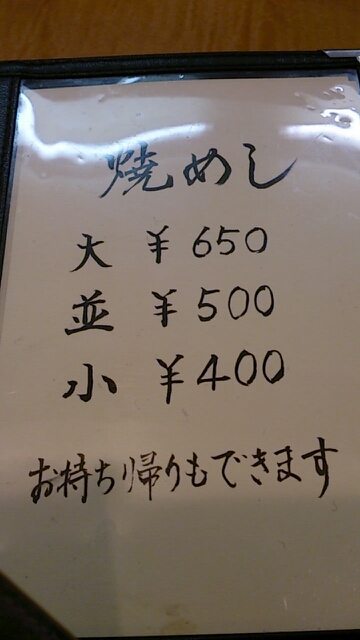 焼めし
大 ¥650
並 ¥500
小 ¥400
お持ち帰りもできます